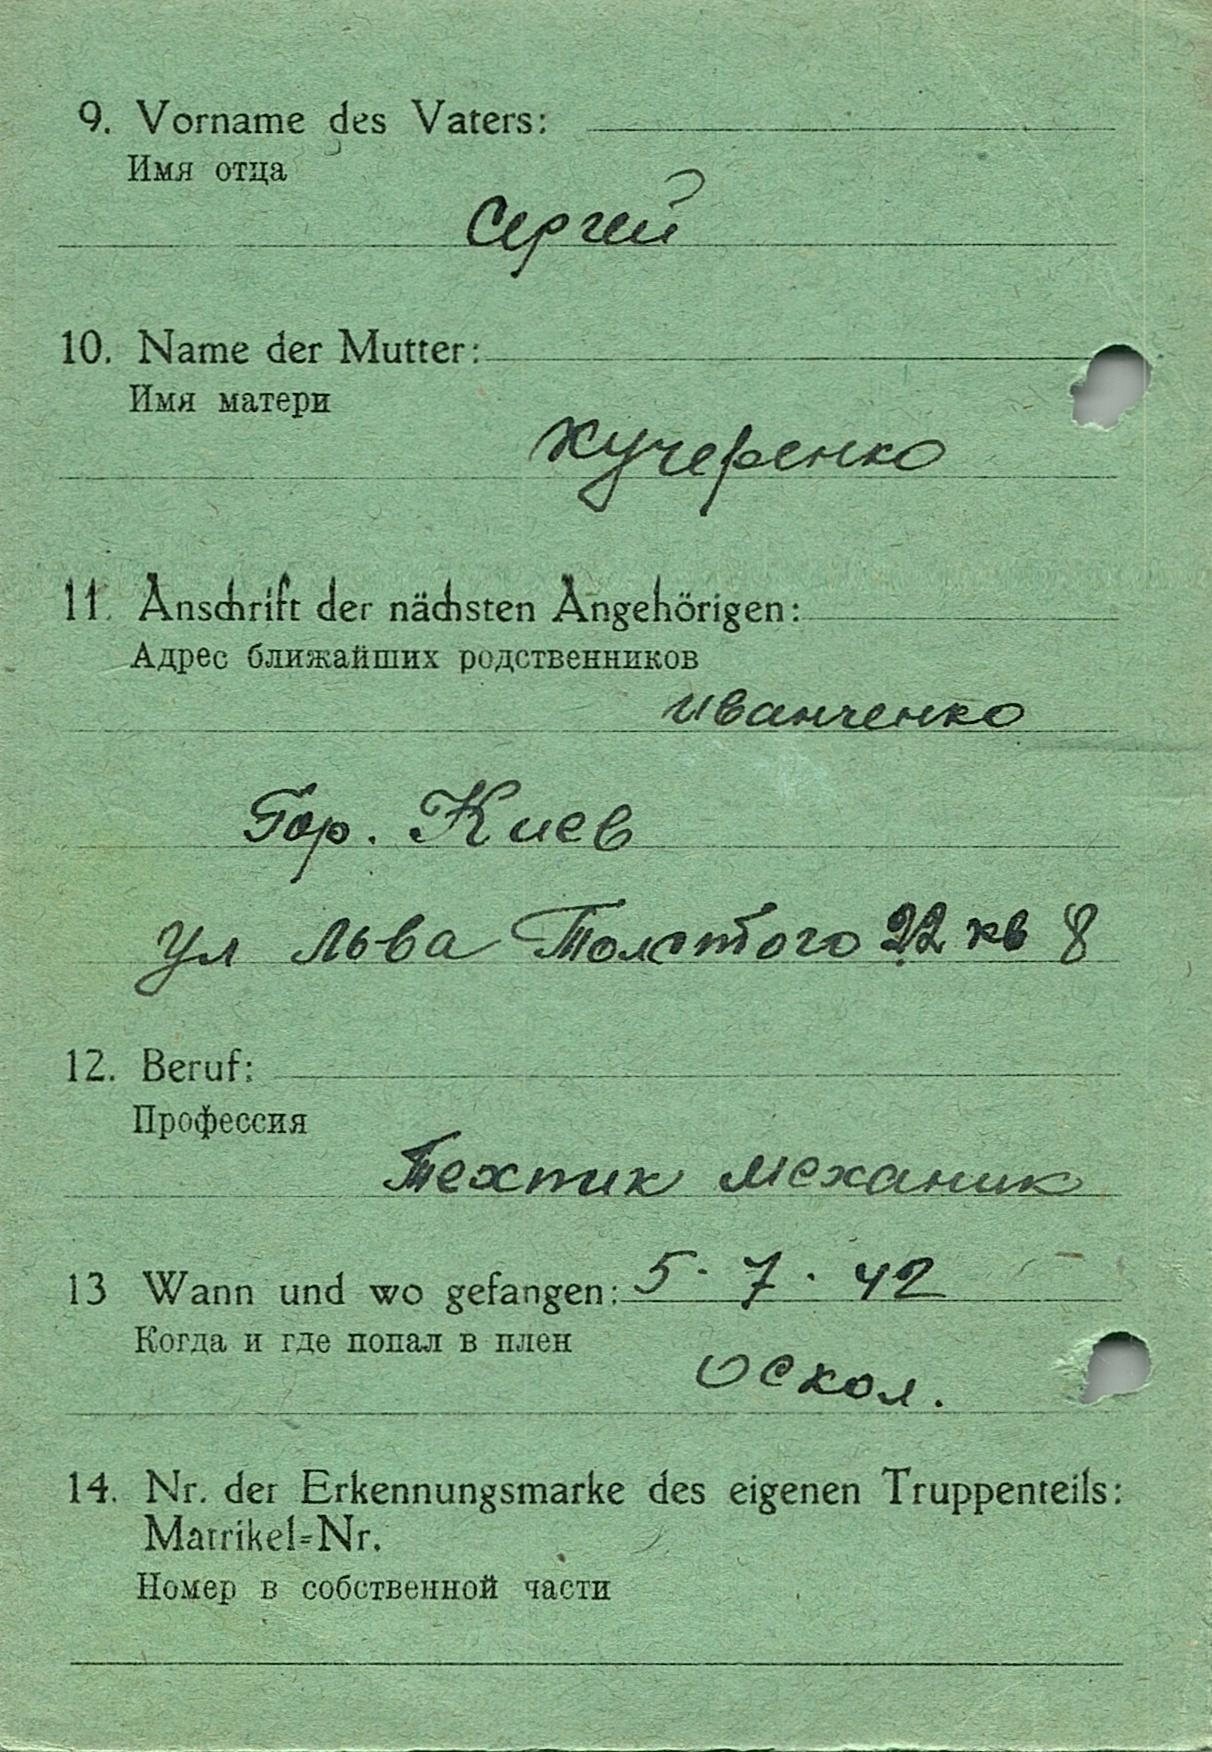 9. Vorname des Vaters:
Имя отца
Сергей
10. Name der Mutter:
Имя матери
Кучеренко
11. Anschrift der nächsten Angehörigen:
Адрес ближайших родственников
Иванченко
Гор. Киев
ул Льва Толстого 22 кв 8
12. Beruf:
Профессия
Техник механик
13 Wann und wo gefangen: 5.7.42
Когда и где попал в плен
Оскол.
14. Nr. der Erkennungsmarke des eigenen Truppenteils:
Matrikel=Nr.
Номер в собственной части